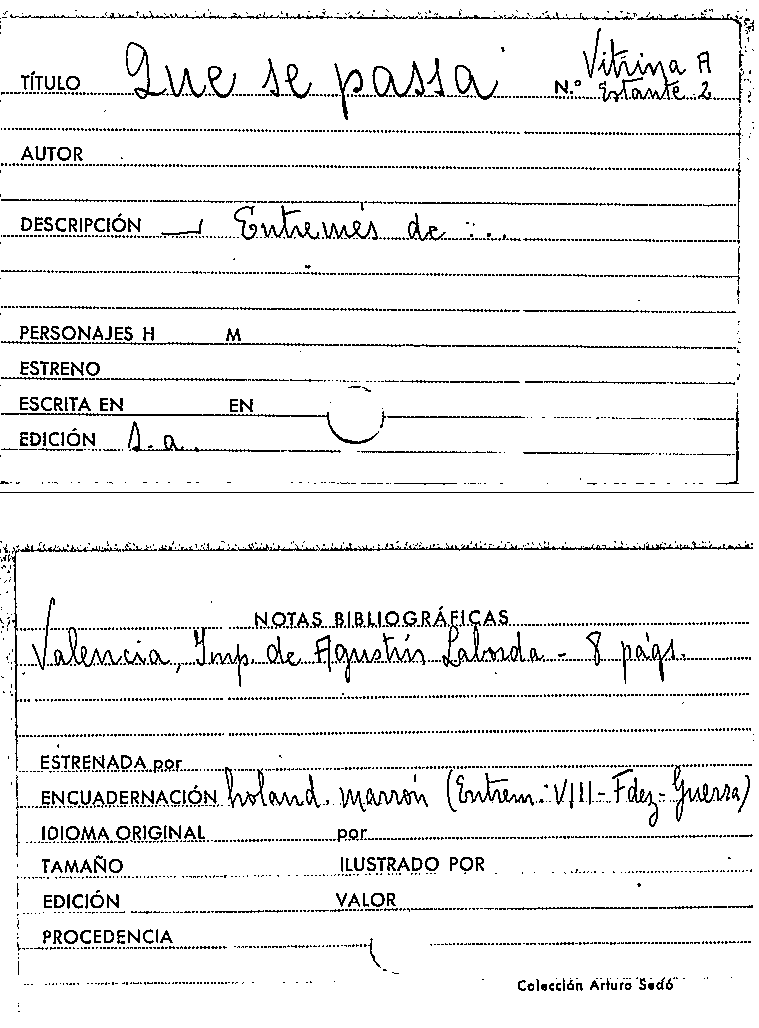 Vitrina A
TÍTULO Que se passa N.º Estante 2
AUTOR
DESCRIPCIÓN — Entremés de ...
PERSONAJES H M
ESTRENO
ESCRITA EN EN
EDICIÓN S. a.
NOTAS BIBLIOGRÁFICAS
Valencia, Imp. de Agustín Laborda - 8 págs.
ESTRENADA por
ENCUADERNACIÓN holand. marrón (Entrem: VIII - Fdez-Guerra)
IDIOMA ORIGINAL por
TAMAÑO ILUSTRADO POR
EDICIÓN VALOR
PROCEDENCIA
Colección Arturo Sedó